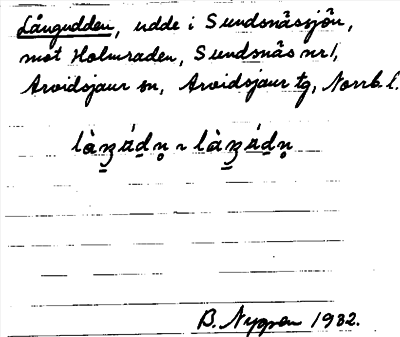 Långudden, udde i Sundsnässjön,
mot Holmraden, Sundsnäs nr 1,
Arvidsjaur sn, Arvidsjaur tg, Norrb. l.
B. Nygren 1932.